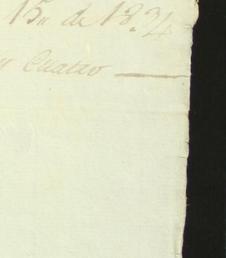 15 de 1834
y Cuatro